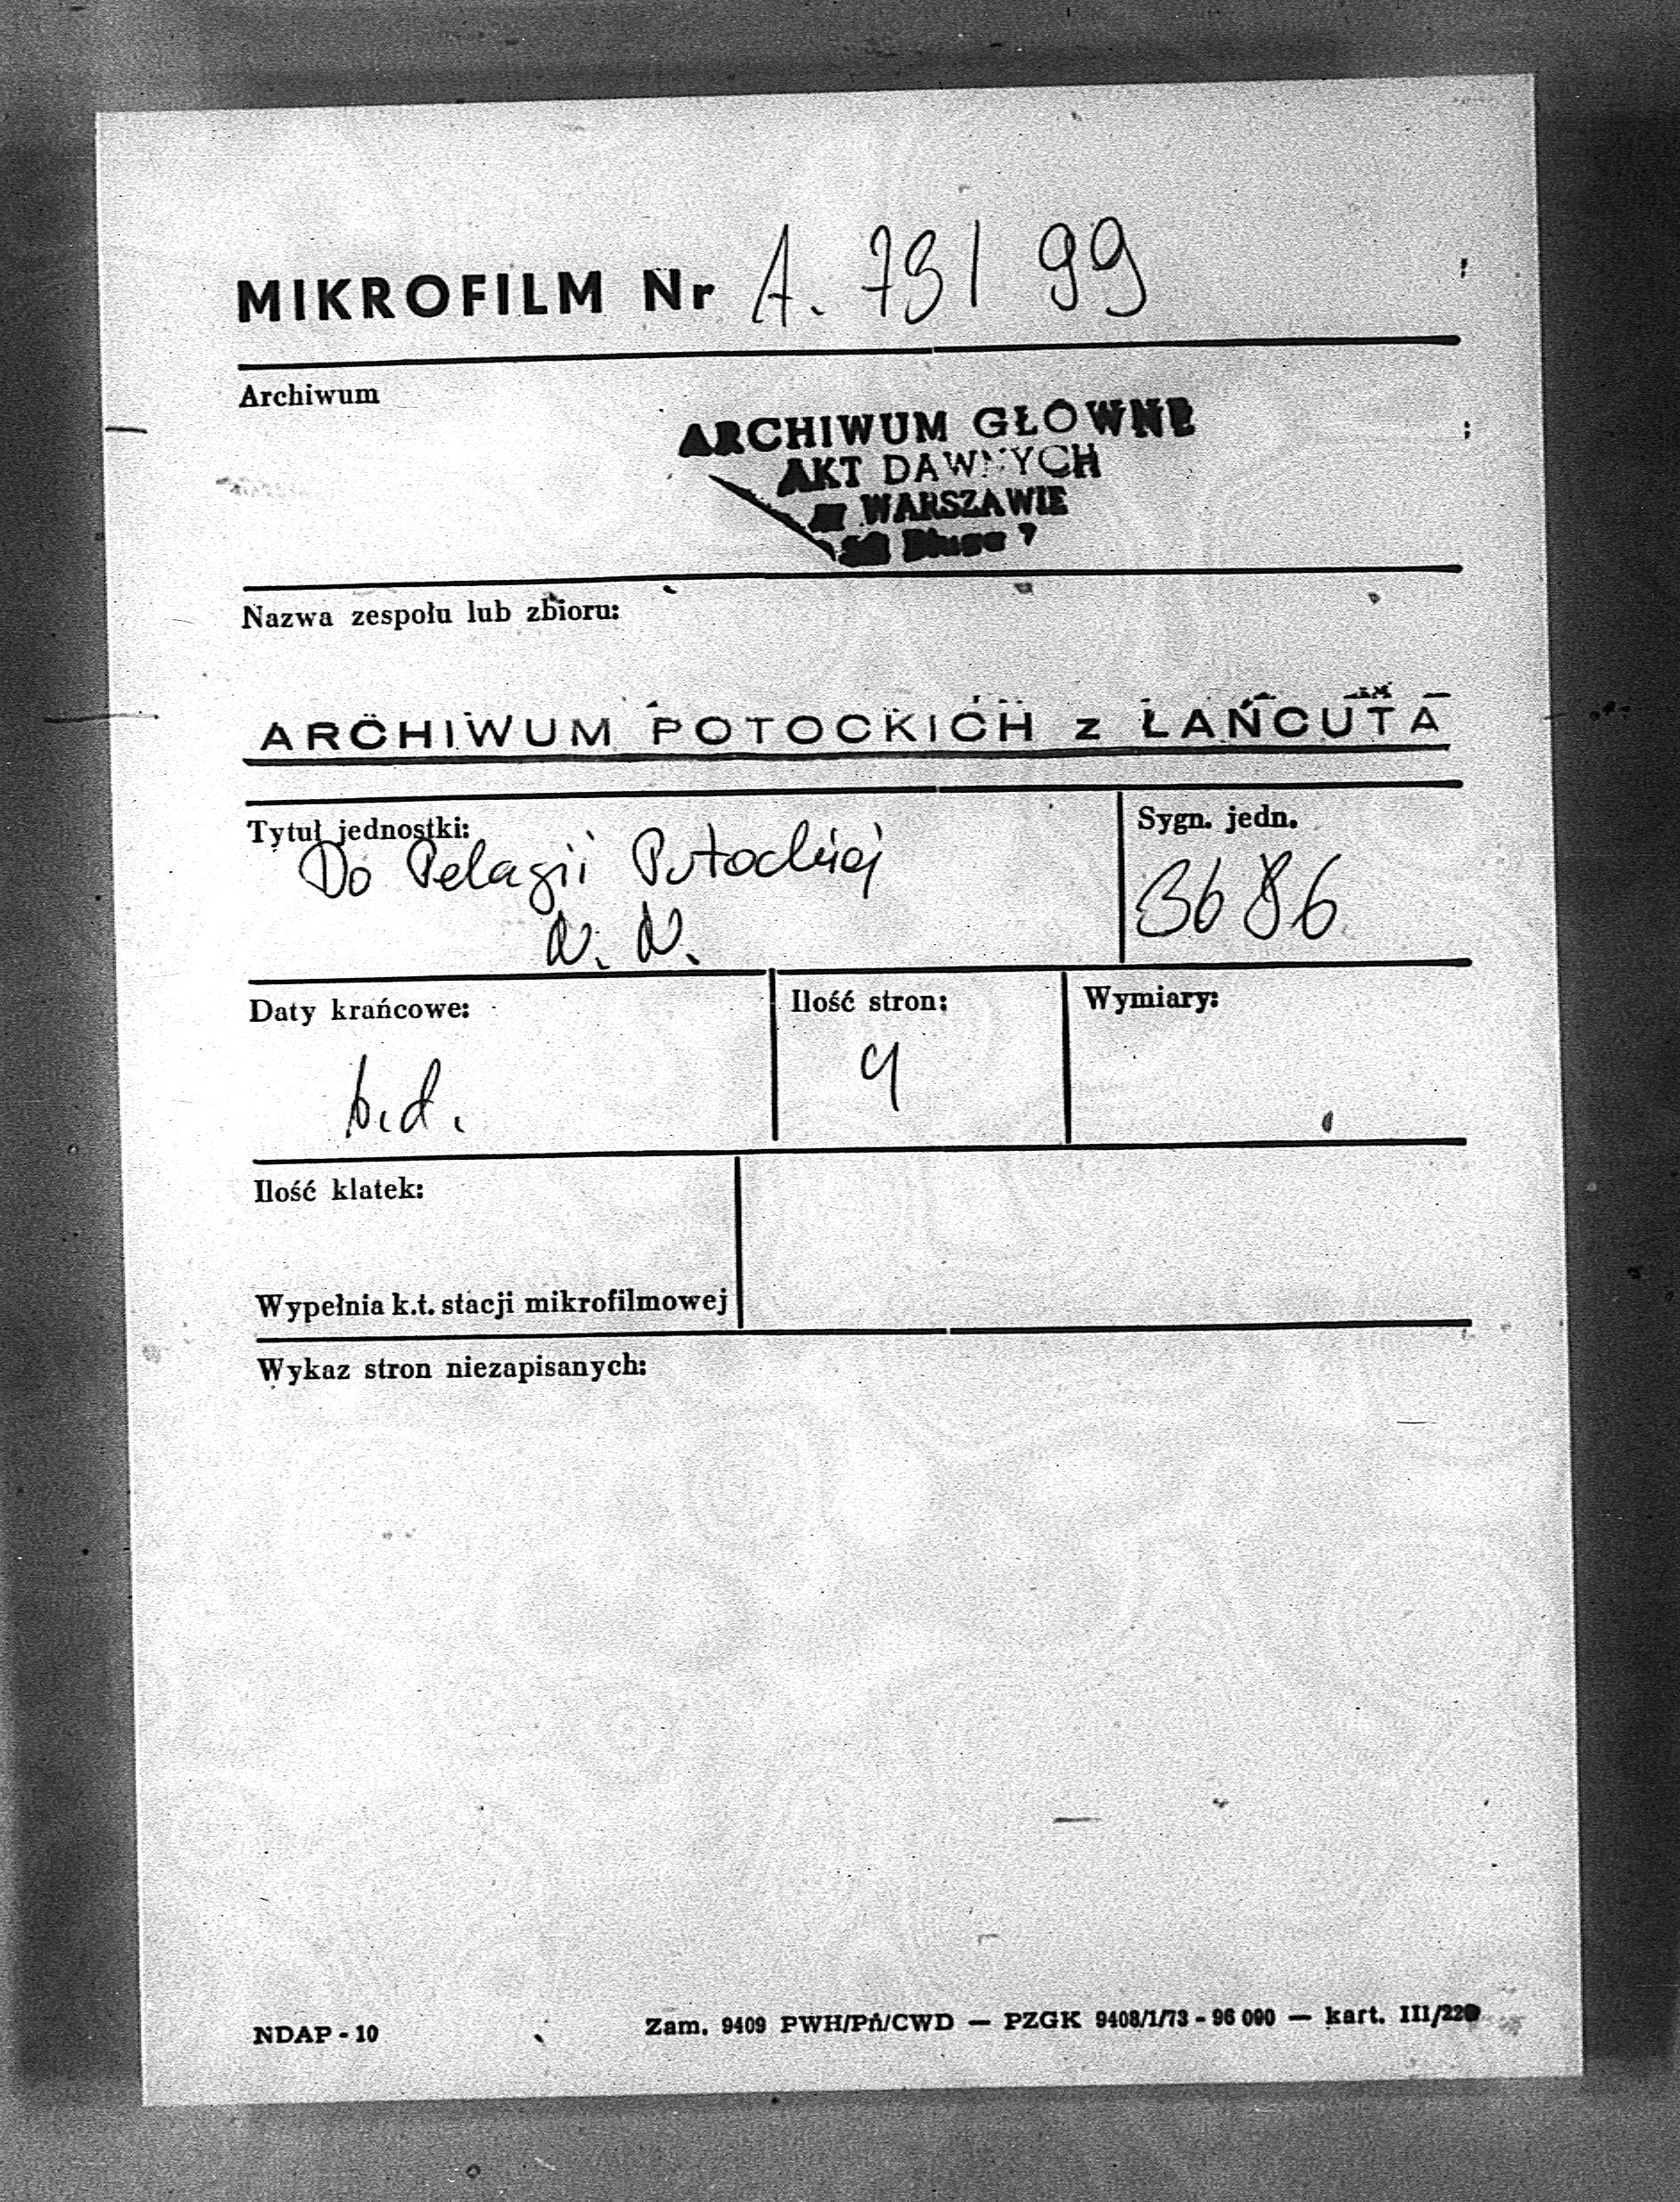 MIKROFILM Nr A. 79/99
Archiwum
ARCHIWUM GŁÓWNE
AKT DAWNYCH
WARSZAWIE
Nazwa zespołu lub zbioru:
ARCHIWUM POTOCKICH z ŁAŃCUTA
Tytuł jednostki:
Do Pelagii Potockiej
N. N.
Sygn. jedn.
3686
Daty krańcowe:
b.d.
Ilość stron:
4
Wymiary:
Ilość klatek:
Wypełnia k.t. stacji mikrofilmowej
Wykaz stron niezapisanych:
NDAP - 10
Zam. 9409 PWH/Pń/CWD — PZGK 9408/1/73 - 96 000 — kart. III/220